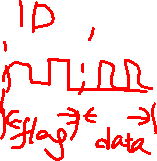 ID
flag data